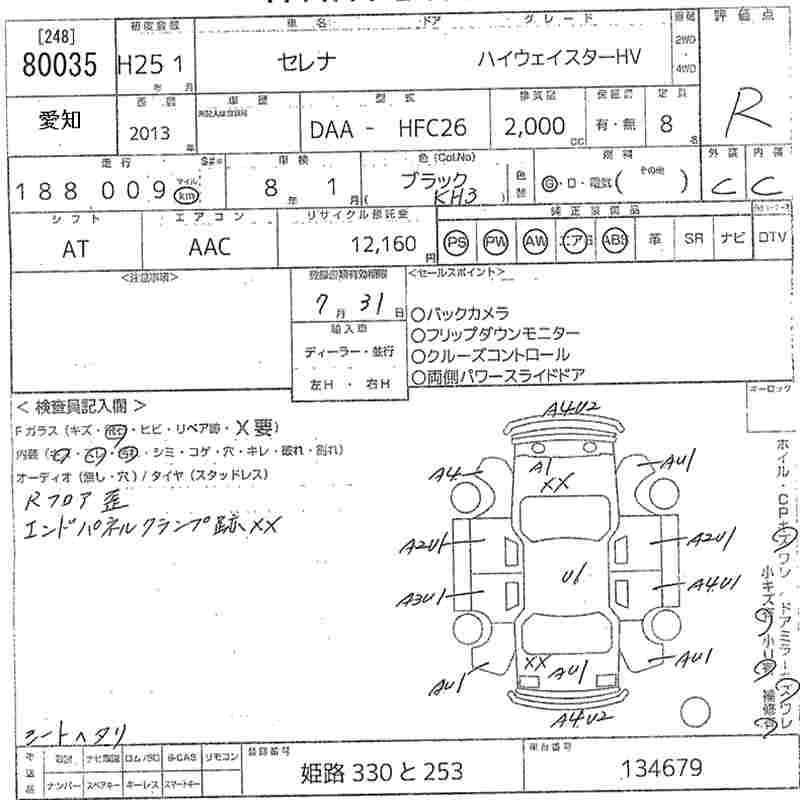 [248]
80035
初度登録
H25 1
年 月
車名 ドア グレード
セレナ ハイウェイスターHV
2WD
・
4WD
評価点
R
愛知
2013
年
車歴
型式
DAA - HFC26
排気量
2,000
CC
保証書
有・無
定員
8
名
走行
188009
マイル
km
車検
8 1
年 月
色 (Col.No)
ブラック
( KH3 )
色替
燃種
G・D・電気( その他 )
外装
C
内装
C
シフト
AT
エアコン
AAC
リサイクル預託金
12,160
円
純正装備品
PS PW AW エアB ABS 革 SR ナビ DTV
<注意事項>
登録書類有効期限
7月31日
輸入車
ディーラー・並行
左H ・ 右H
<セールスポイント>
○バックカメラ
○フリップダウンモニター
○クルーズコントロール
○両側パワースライドドア
キーロック
< 検査員記入欄 >
Fガラス (キズ・飛石・ヒビ・リペア跡・X要)
シミ・コゲ・穴・キレ・破れ・割れ)
オーディオ (無し・穴) / タイヤ (スタッドレス)
Rフロア歪
エンドパネルクランプ跡XX
A4U2
A1
XX
A4
AU1
A2U1
A2U1
U1
A3U1
A4U1
XX
AU1
AU1
AU1
A4U2
ホイル・CPキズワレ
ドアミラーキズワレ
小キズ有
補修有
シートヘタリ
後送品
取説 ナビ取説 ロム/SD B-CAS リモコン
ナンバー スペアキー キーレス スマートキー
登録番号
姫路 330 と 253
車台番号
134679